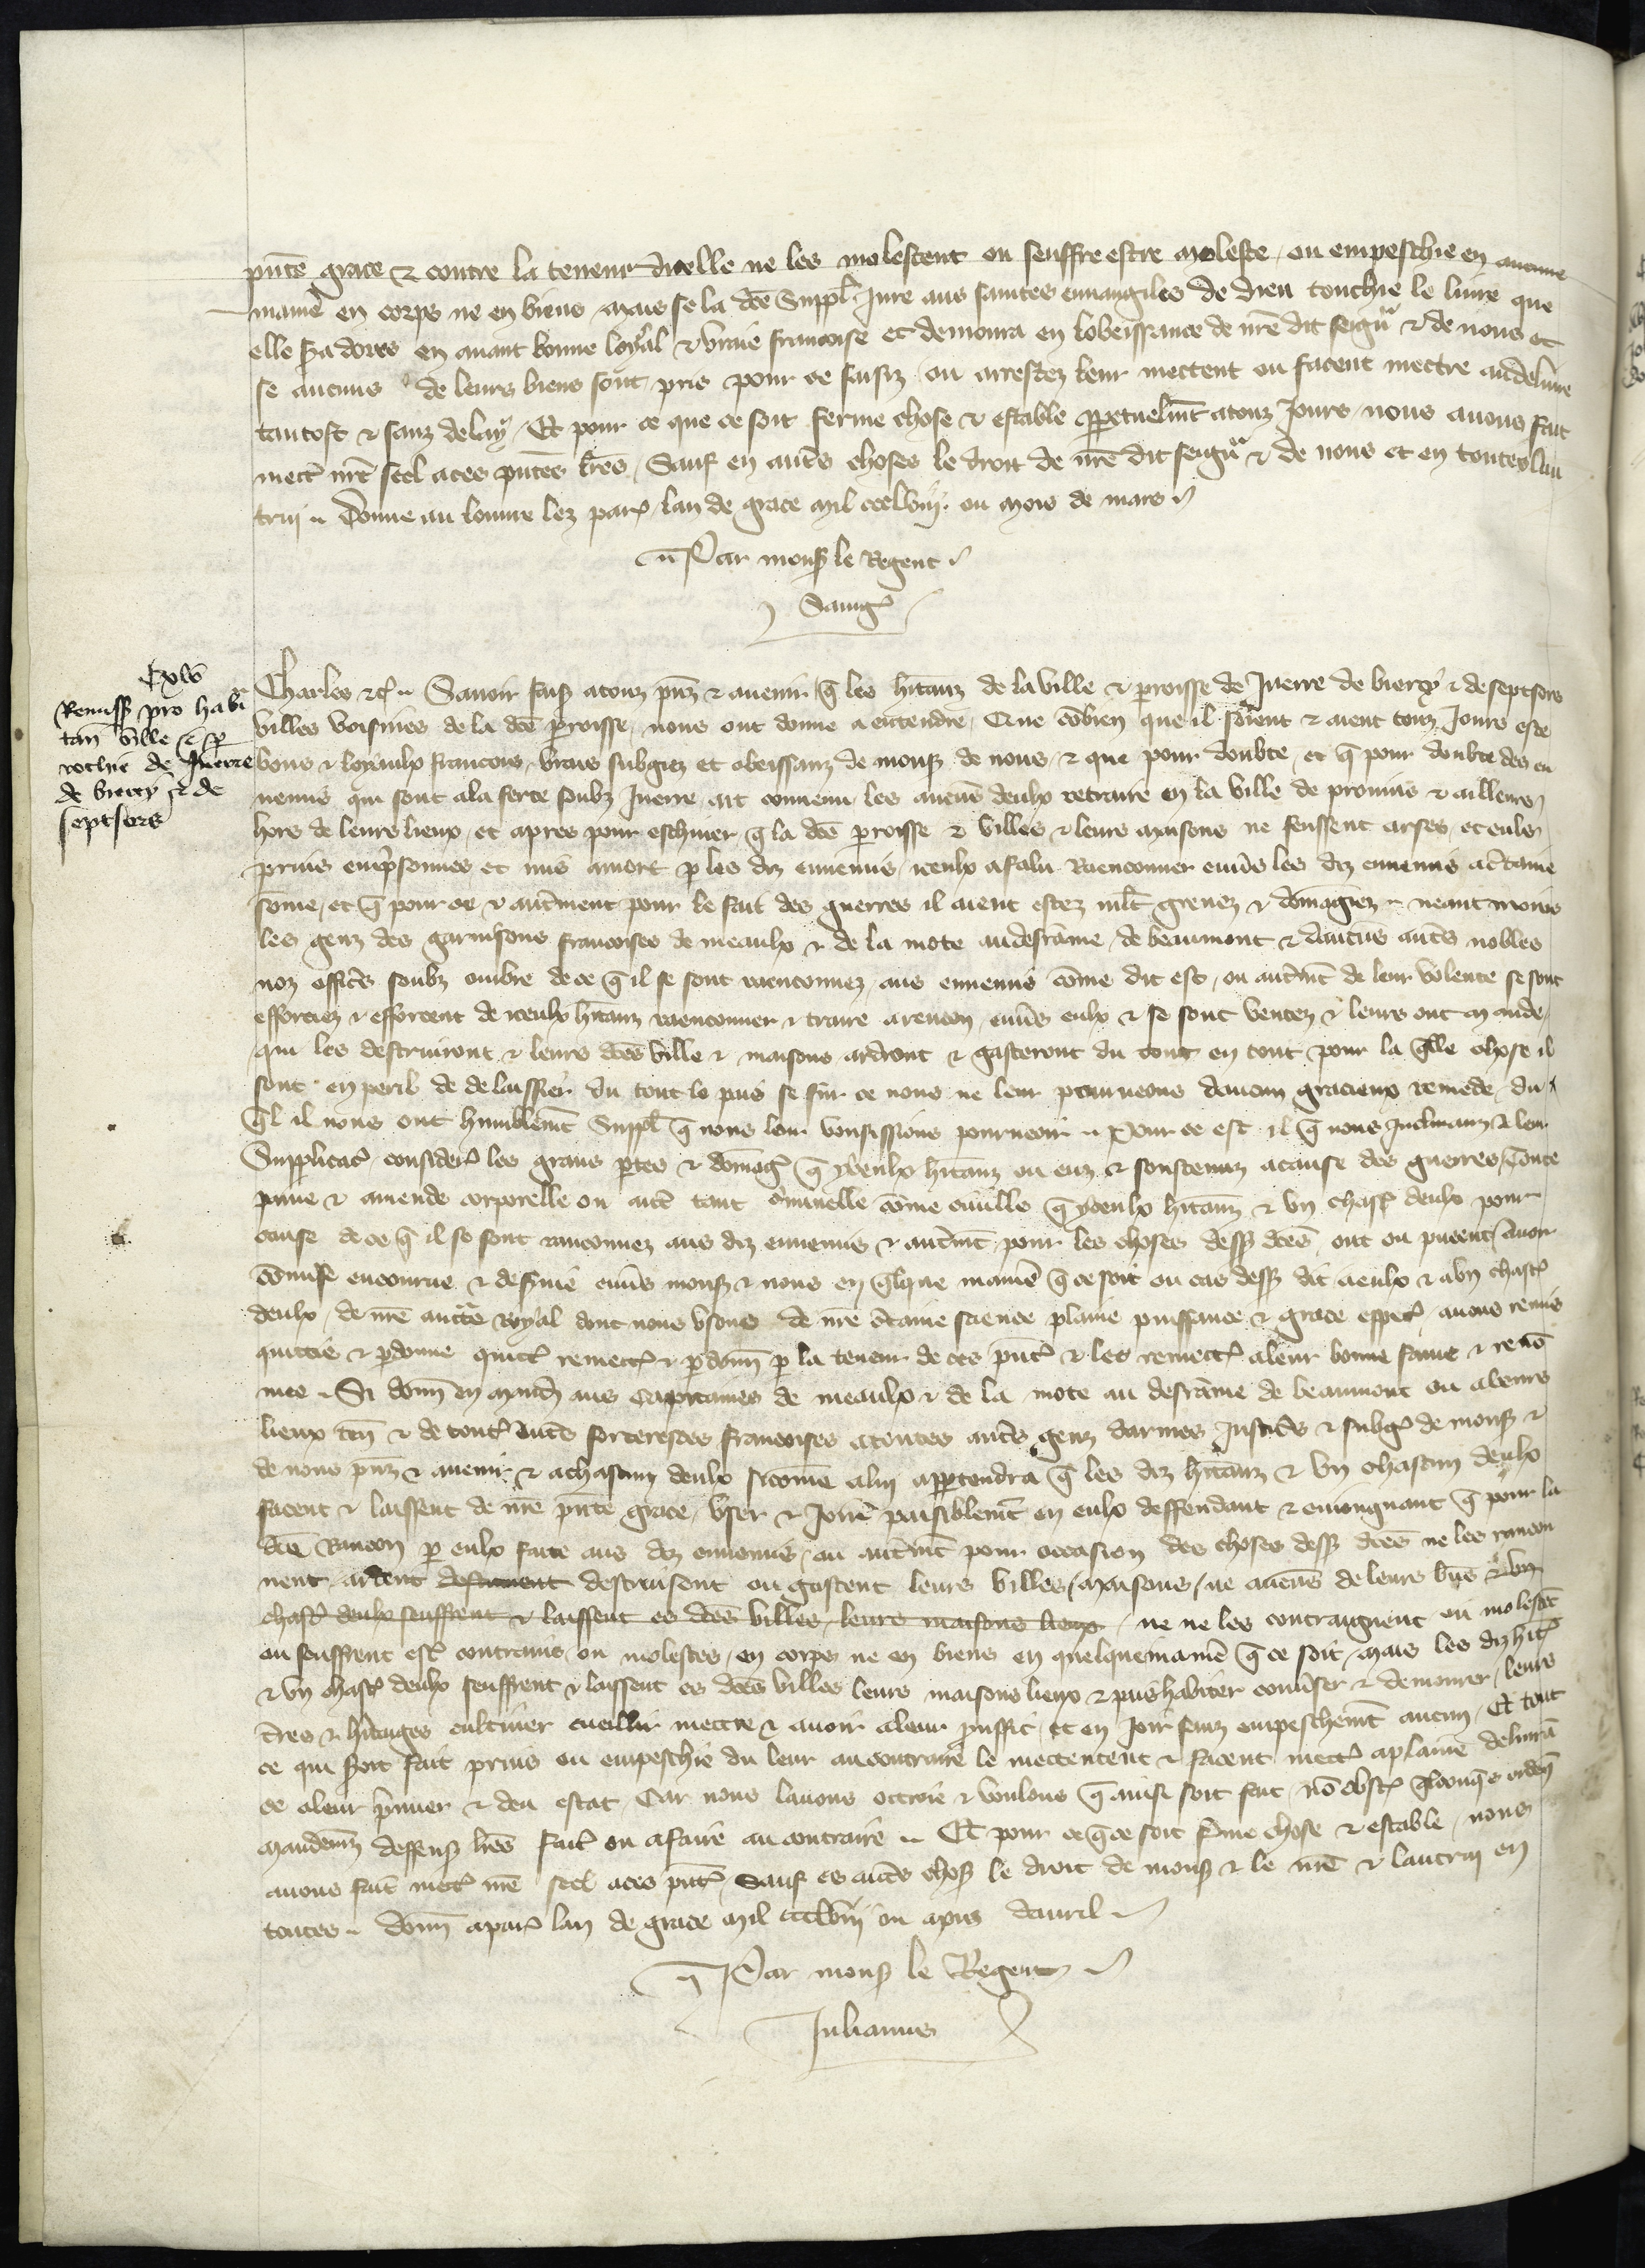 pñte grace & contre la teneur dicelle ne les molestent ou seuffre estre moleste, ou empeschie en aucune
maniẽ en corps ne en biens Mais se la dcẽ Suppl̃ Jure aus saintes euuangiles de dieu touchie le liure que
elle s̃a dores en auant bonne loyal & vraie francoise et demoura en lobeissance de nr̃e dit seignr̃ & de nous et
se aucuns de leurs biens sont pris pour ce saisiz ou arrestez leur mettent ou facent mectre au deliure
tantost & sanz delay, Et pour ce que ce soit ferme chose & estable ꝑpetuelmt̃ atouz Jours nous auons fait
mectr̃ nr̃e scel aces pñtes lr̃es, Sauf en autr̃s choses le droit de nr̃e dit seignr̃ & de nous et en toutes lau
trui Donne au louure lez par̃ lan de grace mil ccclviij. ou mois de mars
Par mons̃ le Regent
Saing̃
Cxlv
Remiss̃ pro habi
tañ ville et ꝑ
rochie de Juerre
de biercy & de
septsors
Charles &c̃ Sauoir fais̃ atouz pñz & auenir q̃ les hĩtanz de la ville & ꝑroisse de Juerre de biercy & de septsors
villes voisines de la dcẽ ꝑroisse, nous ont donne a entendre, Que cõbien que il soient & aient touz Jours este
bons & loyaulx francois, vrais subgiez et obeissanz de mons̃ de nous, & que pour doubte, et q̃ pour doubte des en
nemis qui sont ala ferte soubz Juerre, ait conuenu les aucuñ deulx retraire en la ville de prouins & ailleurs
hors de leurs lieux, et apres pour eschiuer q̃ la dcẽ ꝑroisse & villes & leurs maisons ne feussent arses, et eulx
prins emprisonnes et mis amort ꝑ les diz ennemis, iceulx a falu Raenconner enuers les diz ennemis ac̃taine
sõme, et q̃ pour ce & autr̃ment pour le fait des guerres il aient estez ml̃t greuez & dõmagiez neantmoins
les genz des garnisons francoises de meaulx & de la mote au destr̃ame, de beaumont & daucuns autr̃s nobles
noz offic̃s soubz ombre de ce q̃ il se sont raenconnez, aus ennemis cõme dit est, ou autr̃mt̃ de leur volente se sont
efforciez & efforcent de iceulx hĩtanz raenconner & traire arencon, enũs eulx & se sont ventez & leurs ont mande
qui les destruiront & leurs dcẽs ville & maisons ardront & gasteront du tout en tout pour la q̃lle chose il
sont en peril de delaissier du tout le pais se sur ce nous ne leur pourueons daucun gracieux remede, du
q̃l il nous ont humblemt̃ Suppl̃ q̃ nous leur voussissions pourueoir Pour ce est il q̃ nous Inclinanz a leur
Supplicac̃, consider̃ les grans ꝑtes & dõmag̃ q̃ yceulx hĩtanz ou euz & soustenuz acause des guerres, toute
paine & amende corporelle ou autr̃ tant criminelle cõme ciuille q̃ yceulx hĩtanz & vn chasc̃ deulx pour
cause de ce q̃ il se sont ranconnez aus diz ennemis & autr̃mt̃ pour les choses dess̃ dcẽs, ont ou pueent auoir
cõmise encourue & desseruie enũs mons̃ & nous en q̃lque maniẽ q̃ ce soit ou cas dess̃ dit aeulx & avn chasc̃
deulx, de nr̃e auctr̃e royal dont nous vsons de nr̃e c̃taine science plaine puissance & grace esp̃al, auons remis
quictie & ꝑdonne quictõs remectõs & ꝑdonñ ꝑ la teneur de ces pñtes & les remectõs aleur bonne fame & renõ
mee Si donñ en mandem̃ aus Capitaines de meaulx & de la mote au destr̃ame de beaumont ou aleurs
lieux teñ & de tout̃ autr̃s forteresces francoises atoutes autr̃s genz darmes Justic̃s & subg̃ de mons̃ &
de nous pñz & auenir, & achascun deulx sicomme alui appartendra q̃ les diz hĩtanz & vn chascun deulx
facent & laissent de nr̃e pñte grace, vser & Jouir̃ paisiblemt̃ en eulx deffendant & enioingnant q̃ pour la
dcẽ Rancon ꝑ eulx faite aus diz ennemis, ou autr̃mt̃ pour occasion des choses dess̃ dcẽs ne les rancon
nent, ardent destruient destruisent ou gastent leurs villes, maisons, ne aucuns de leurs biẽs & vn
chasc̃ deulx seuffrent & laissent es dcẽs villes, leurs maisons lieux, ne ne les contraignent ou molestẽt
ou seuffrent estr̃ contrains, ou molestes, en corps ne en biens en quelque maniẽ q̃ ce soit, mais les diz hĩt̃
& vn chasc̃ deulx seuffrent & laissent es dcẽs villes leurs maisons lieux & pais habiter conũser & demourer, leurs
t̃res & hĩtages cultiuer cueillir mectre & auoir aleur prouffit, et en Joir sanz empeschemt̃ aucun, Et tout
ce qui seroit fait prins ou empeschie du leur au contraire le mettentent & facent mectr̃ aplaine deliurã
ce aleur pr̃mier & deu estat Car nous lauons ottroie & voulons q̃ ainsi soit fait, nõ obst̃ q̃lconq̃s orden̄
mandem̃ deffens̃ lr̃es fait̃ ou afaire au contraire Et pour ce q̃ ce soit f̃me chose & estable, nous
auons fait mectr̃ nr̃e scel aces pñtes Sauf es autr̃s chos̃ le droit de mons̃ & le nr̃e & lautrui en
toutes donñ apar̃ lan de grace mil ccclviij ou mois dauril
Par mons̃ le Regent
Julianus